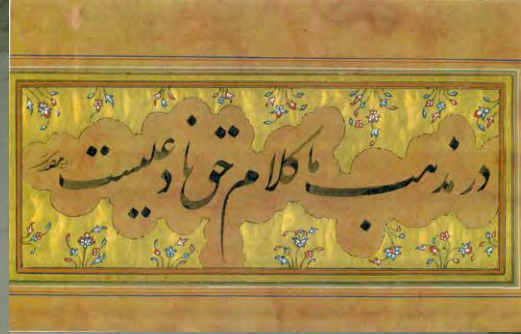 در مذهب ما کلام حق ناد علیست